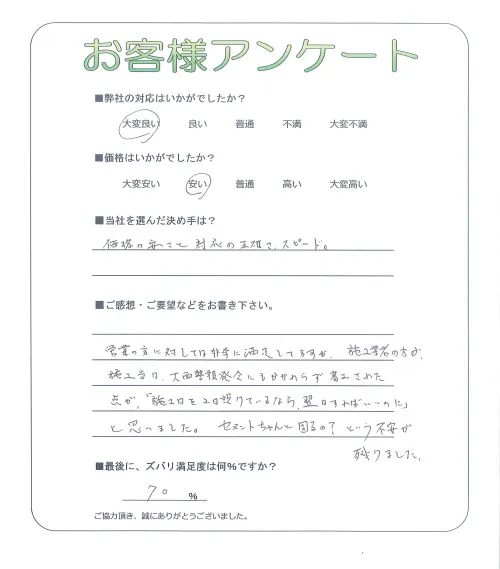 お客様アンケート
■弊社の対応はいかがでしたか？
大変良い 良い 普通 不満 大変不満
■価格はいかがでしたか？
大変安い 安い 普通 高い 大変高い
■当社を選んだ決め手は？
価格の安さと対応の正確さ、スピード。
■ご感想・ご要望などをお書き下さい。
営業の方に対しては非常に満足してますが、施工業者の方が、
施工当日、大雨警報発令にもかかわらず着工された
点が、「施工日を2日設けているなら、翌日すればいいのに」
と思いました。セメントちゃんと固るの？という不安が
残りました。
■最後に、ズバリ満足度は何%ですか？
70 %
ご協力頂き、誠にありがとうございました。